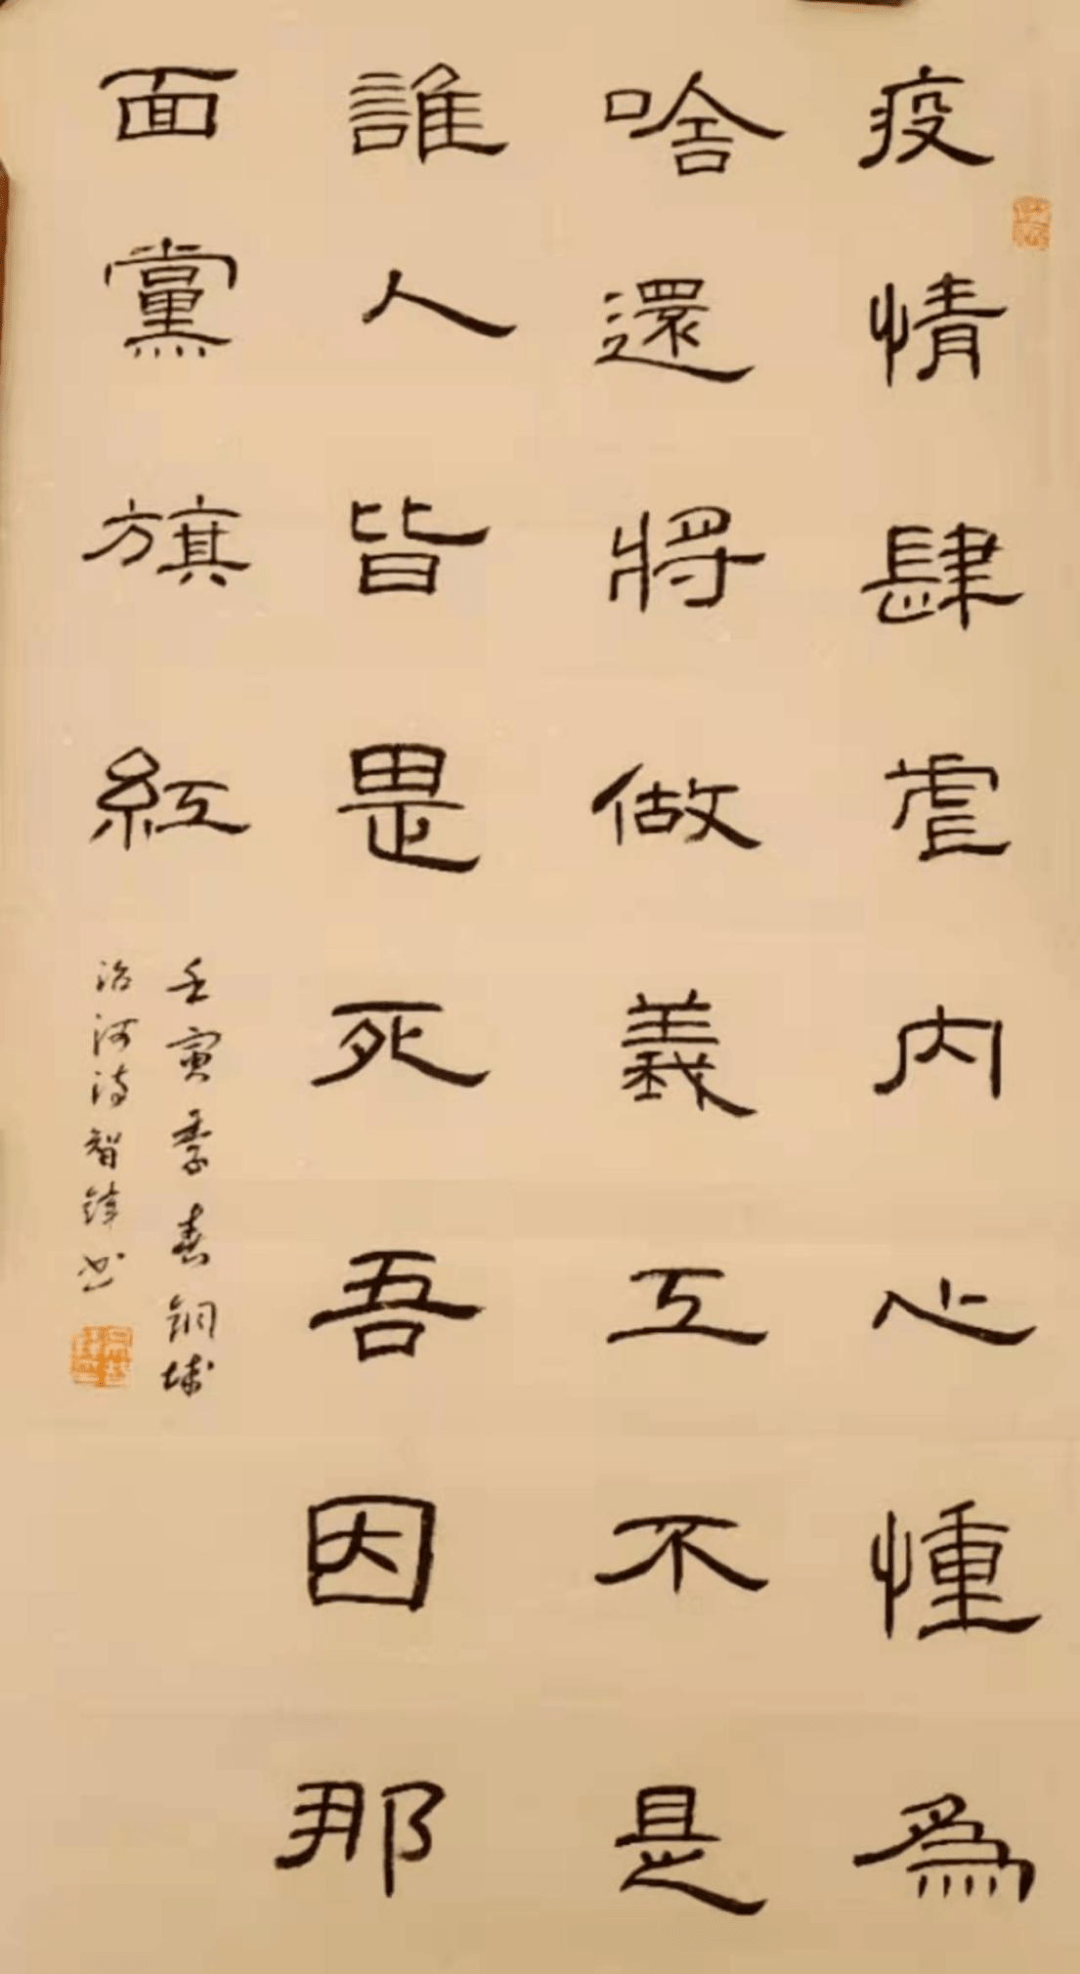 疫情肆虐内心慟為
啥還將做義工不是
誰人皆畏死吾因那
面黨旗紅
壬寅季春銅城
治河詩智鋒书